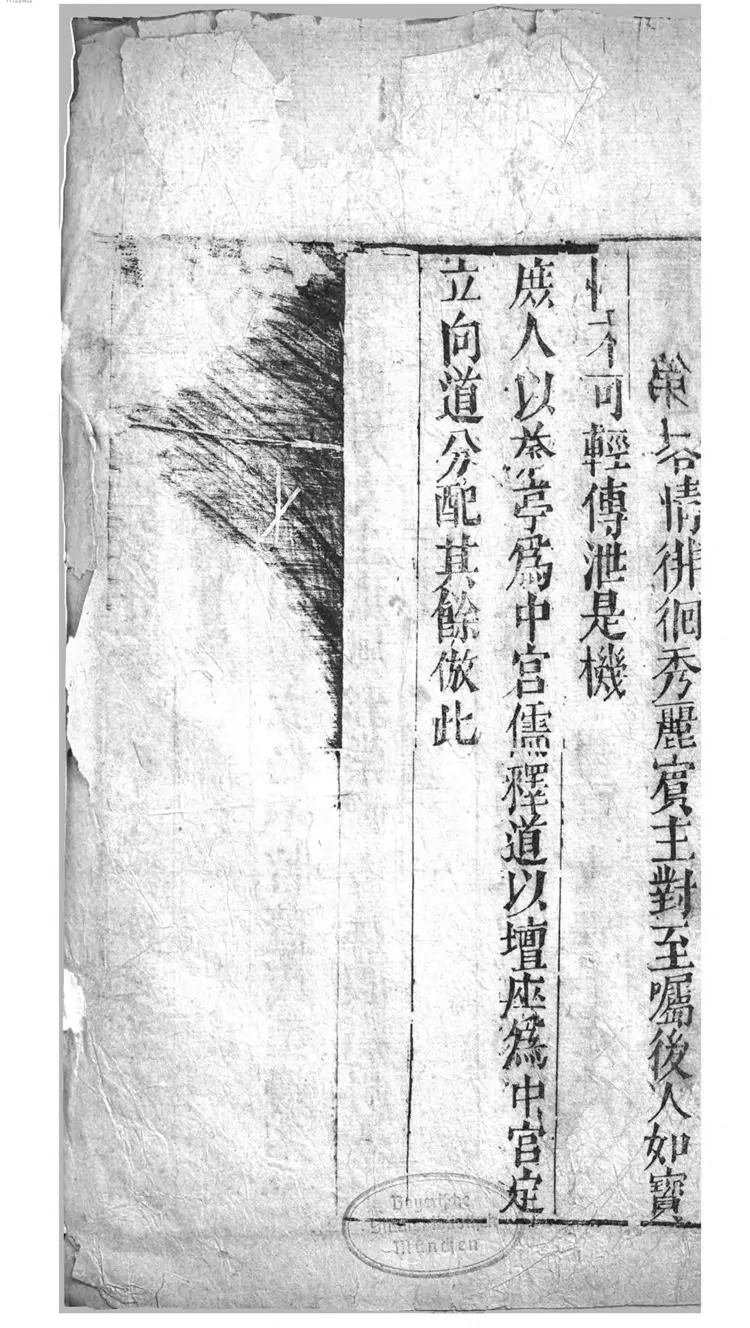 第 情徘徊秀麗賓主對至囑後人如寶
不可輕傳泄是機
庶人以 亭爲中宮儒釋道以壇座爲中宮定
立向道分配其餘倣此
München